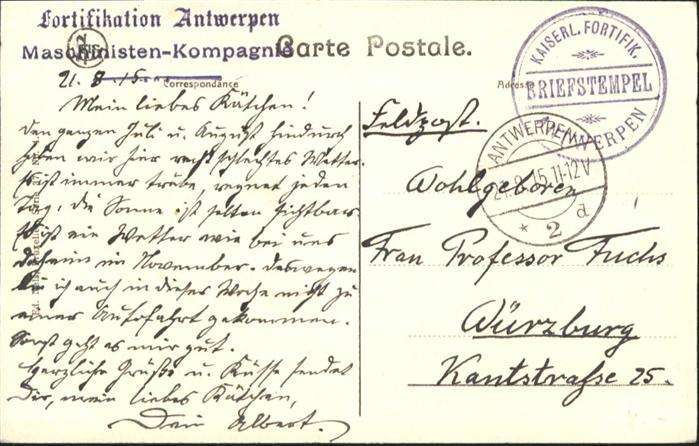 Fortifikation Antwerpen
Maschinisten-Kompagnie
Carte Postale.
Correspondance
Adresse
21. 8. 15.
Mein liebes Kätchen!
Den ganzen Juli u. August hindurch
haben wir hier recht schlechtes Wetter.
Es ist immer trübe, regnet jeden
Tag, die Sonne ist selten sichtbar.
Es ist ein Wetter wie bei uns
daheim im November. Deswegen
bin ich auch in dieser Woche nicht zu
einer Autofahrt gekommen.
Sonst geht es mir gut.
Herzliche Grüße u. Küsse sendet
Dir, mein liebes Kätchen,
Dein Albert.
KAISERL. FORTIFIK.
BRIEFSTEMPEL
ANTWERPEN
ANTWERPEN
21.8.15.11-12V
* 2 d
Feldpost.
Wohlgeboren
Frau Professor Fuchs
Würzburg
Kantstraße 25.